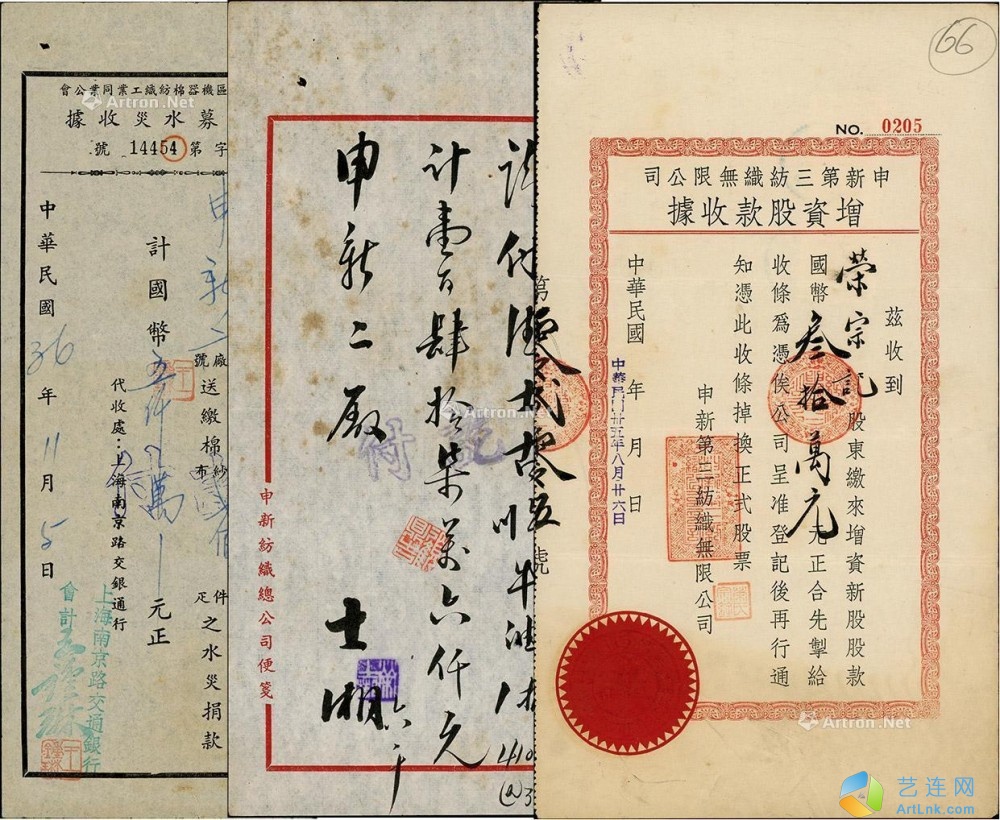 66
NO. 0205
申新第三紡織無限公司
增資股款收據
茲收到
榮宗記股東繳來增資新股股款
國幣叁拾萬元元正合先掣給
收條爲憑俟公司呈准登記後再行通
知憑此收條掉換正式股票
申新第三紡織無限公司
中華民國 年 月 日
中華民國卅五年八月廿六日
計壹百肆拾柒萬六仟元
申新二厰 士湘
六、十
付
申新紡織總公司便箋
區機器棉紡織工業同業公會
募水災收據
字第14454號
申新二
廠號送繳棉紗布
件疋之水災捐款
計國幣
萬
元正
代收處：上海南京路交通銀行
中華民國36年11月5日
上海南京路交通銀行
會計
Artron.Net
Artron.Net
Artron.Net
Artron.Net
艺连网
ArtLnk.com